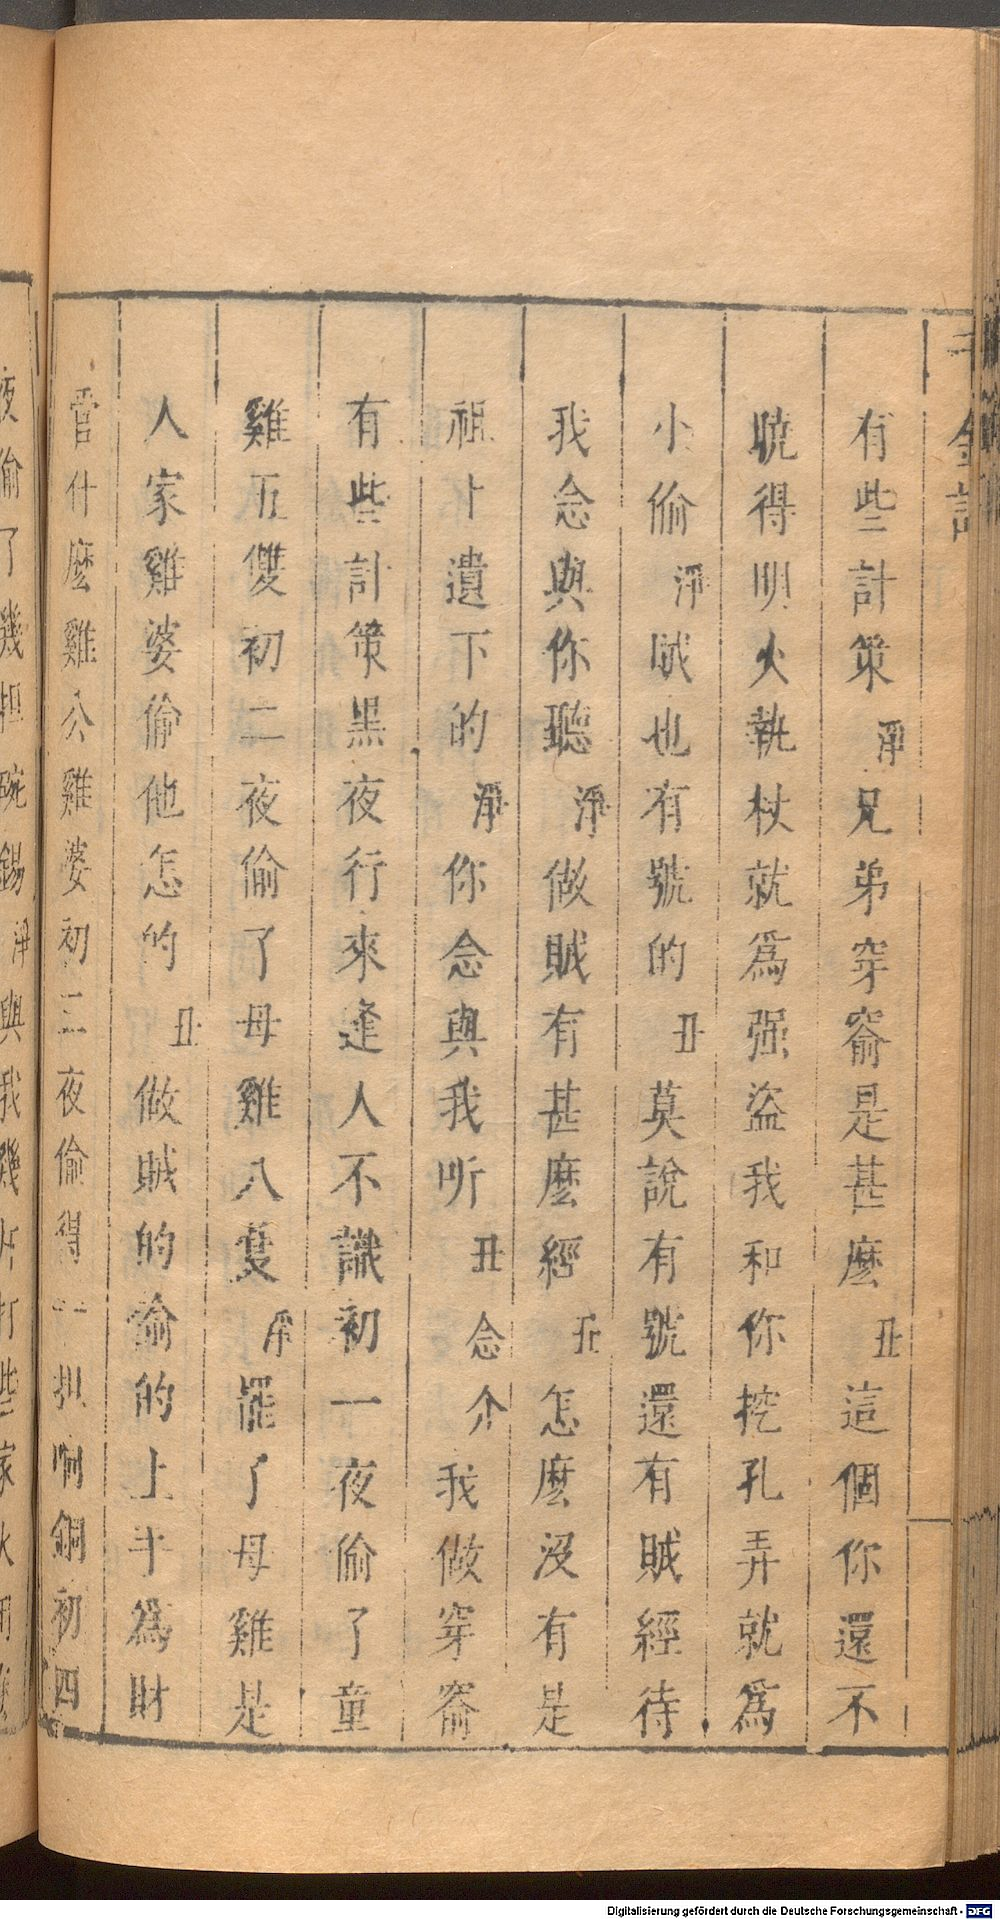 千金記
有些計策淨兄弟穿窬是甚麽丑這個你還不
曉得明火執杖就爲强盜我和你挖孔弄就爲
小偷淨賊也有號的丑莫說有號還有賊經待
我念與你聽淨做賊有甚麽經丑怎麽沒有是
祖上遺下的淨你念與我听丑念介我做穿窬
有些計策黑夜行來逢人不識初一夜偷了童
雞五雙初二夜偷了母雞八隻淨罷了母雞是
人家雞婆偷他怎的丑做賊的偷的上手為財
管什麽雞公雞婆初三夜偷得一担响銅初四
夜偷了幾担碗錫淨與我幾斤打些家火用
Digitalisierung gefördert durch die Deutsche Forschungsgemeinschaft - DFG